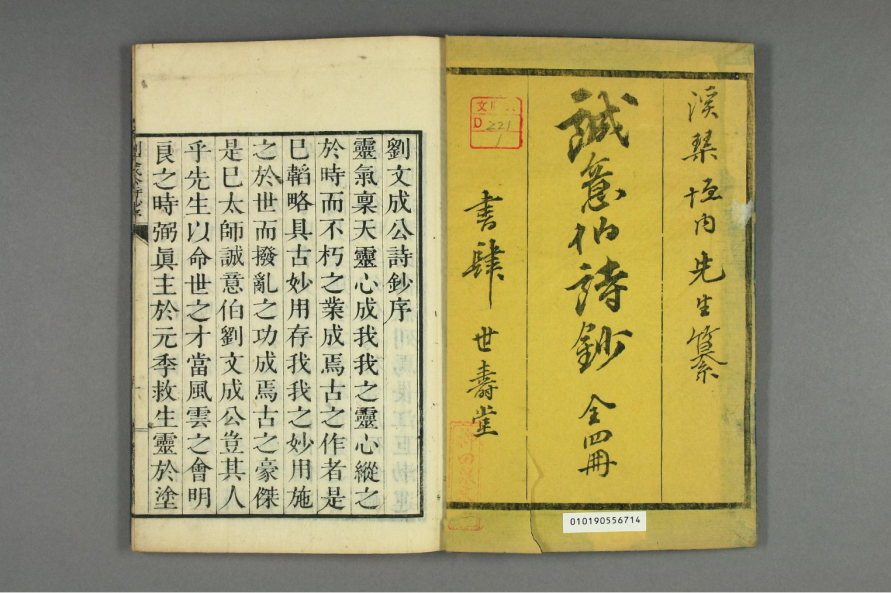 溪琴垣内先生纂
誠意伯詩鈔 全四冊
書肆 世壽堂
文
D 221
1
010190556714
劉文成公詩鈔序
靈氣稟天靈心成我我之靈心縱之
於時而不朽之業成焉古之作者是
巳韜略具古妙用存我我之妙用施
之於世而撥亂之功成焉古之豪傑
是巳太師誠意伯劉文成公豈其人
乎先生以命世之才當風雲之會明
良之時弼眞主於元季救生靈於塗